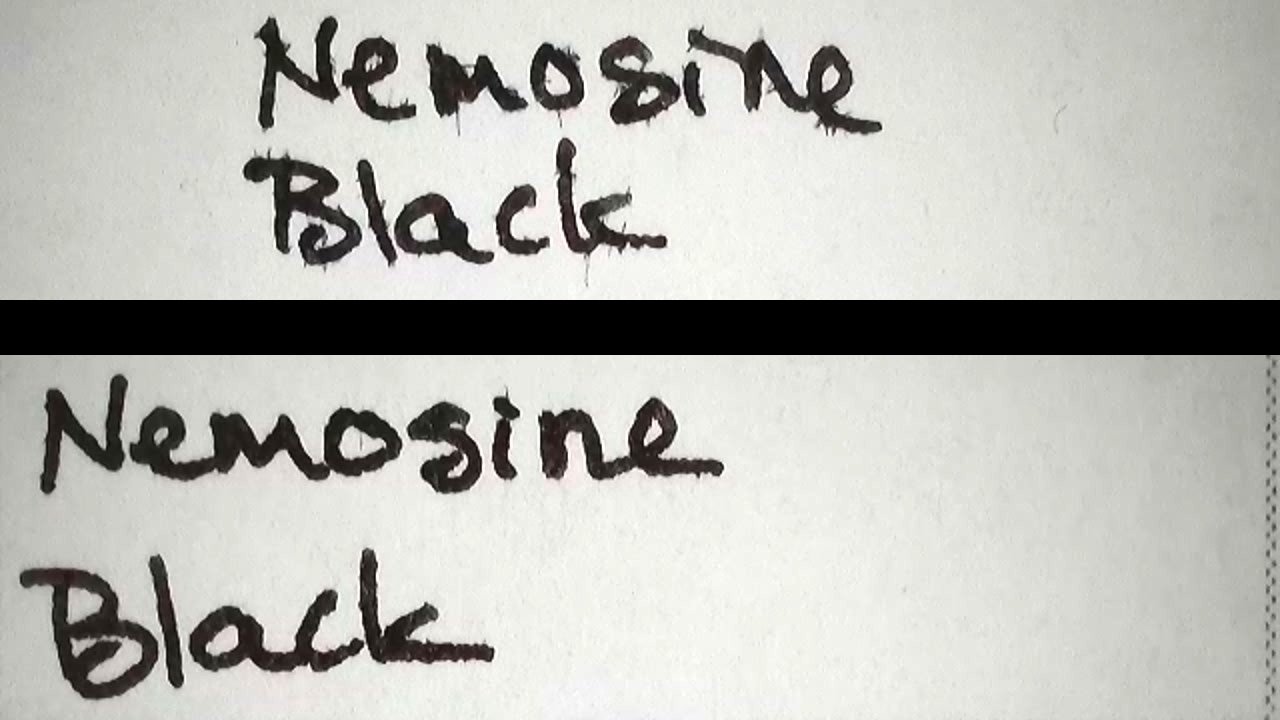 Nemosine
Black
Nemosine
Black